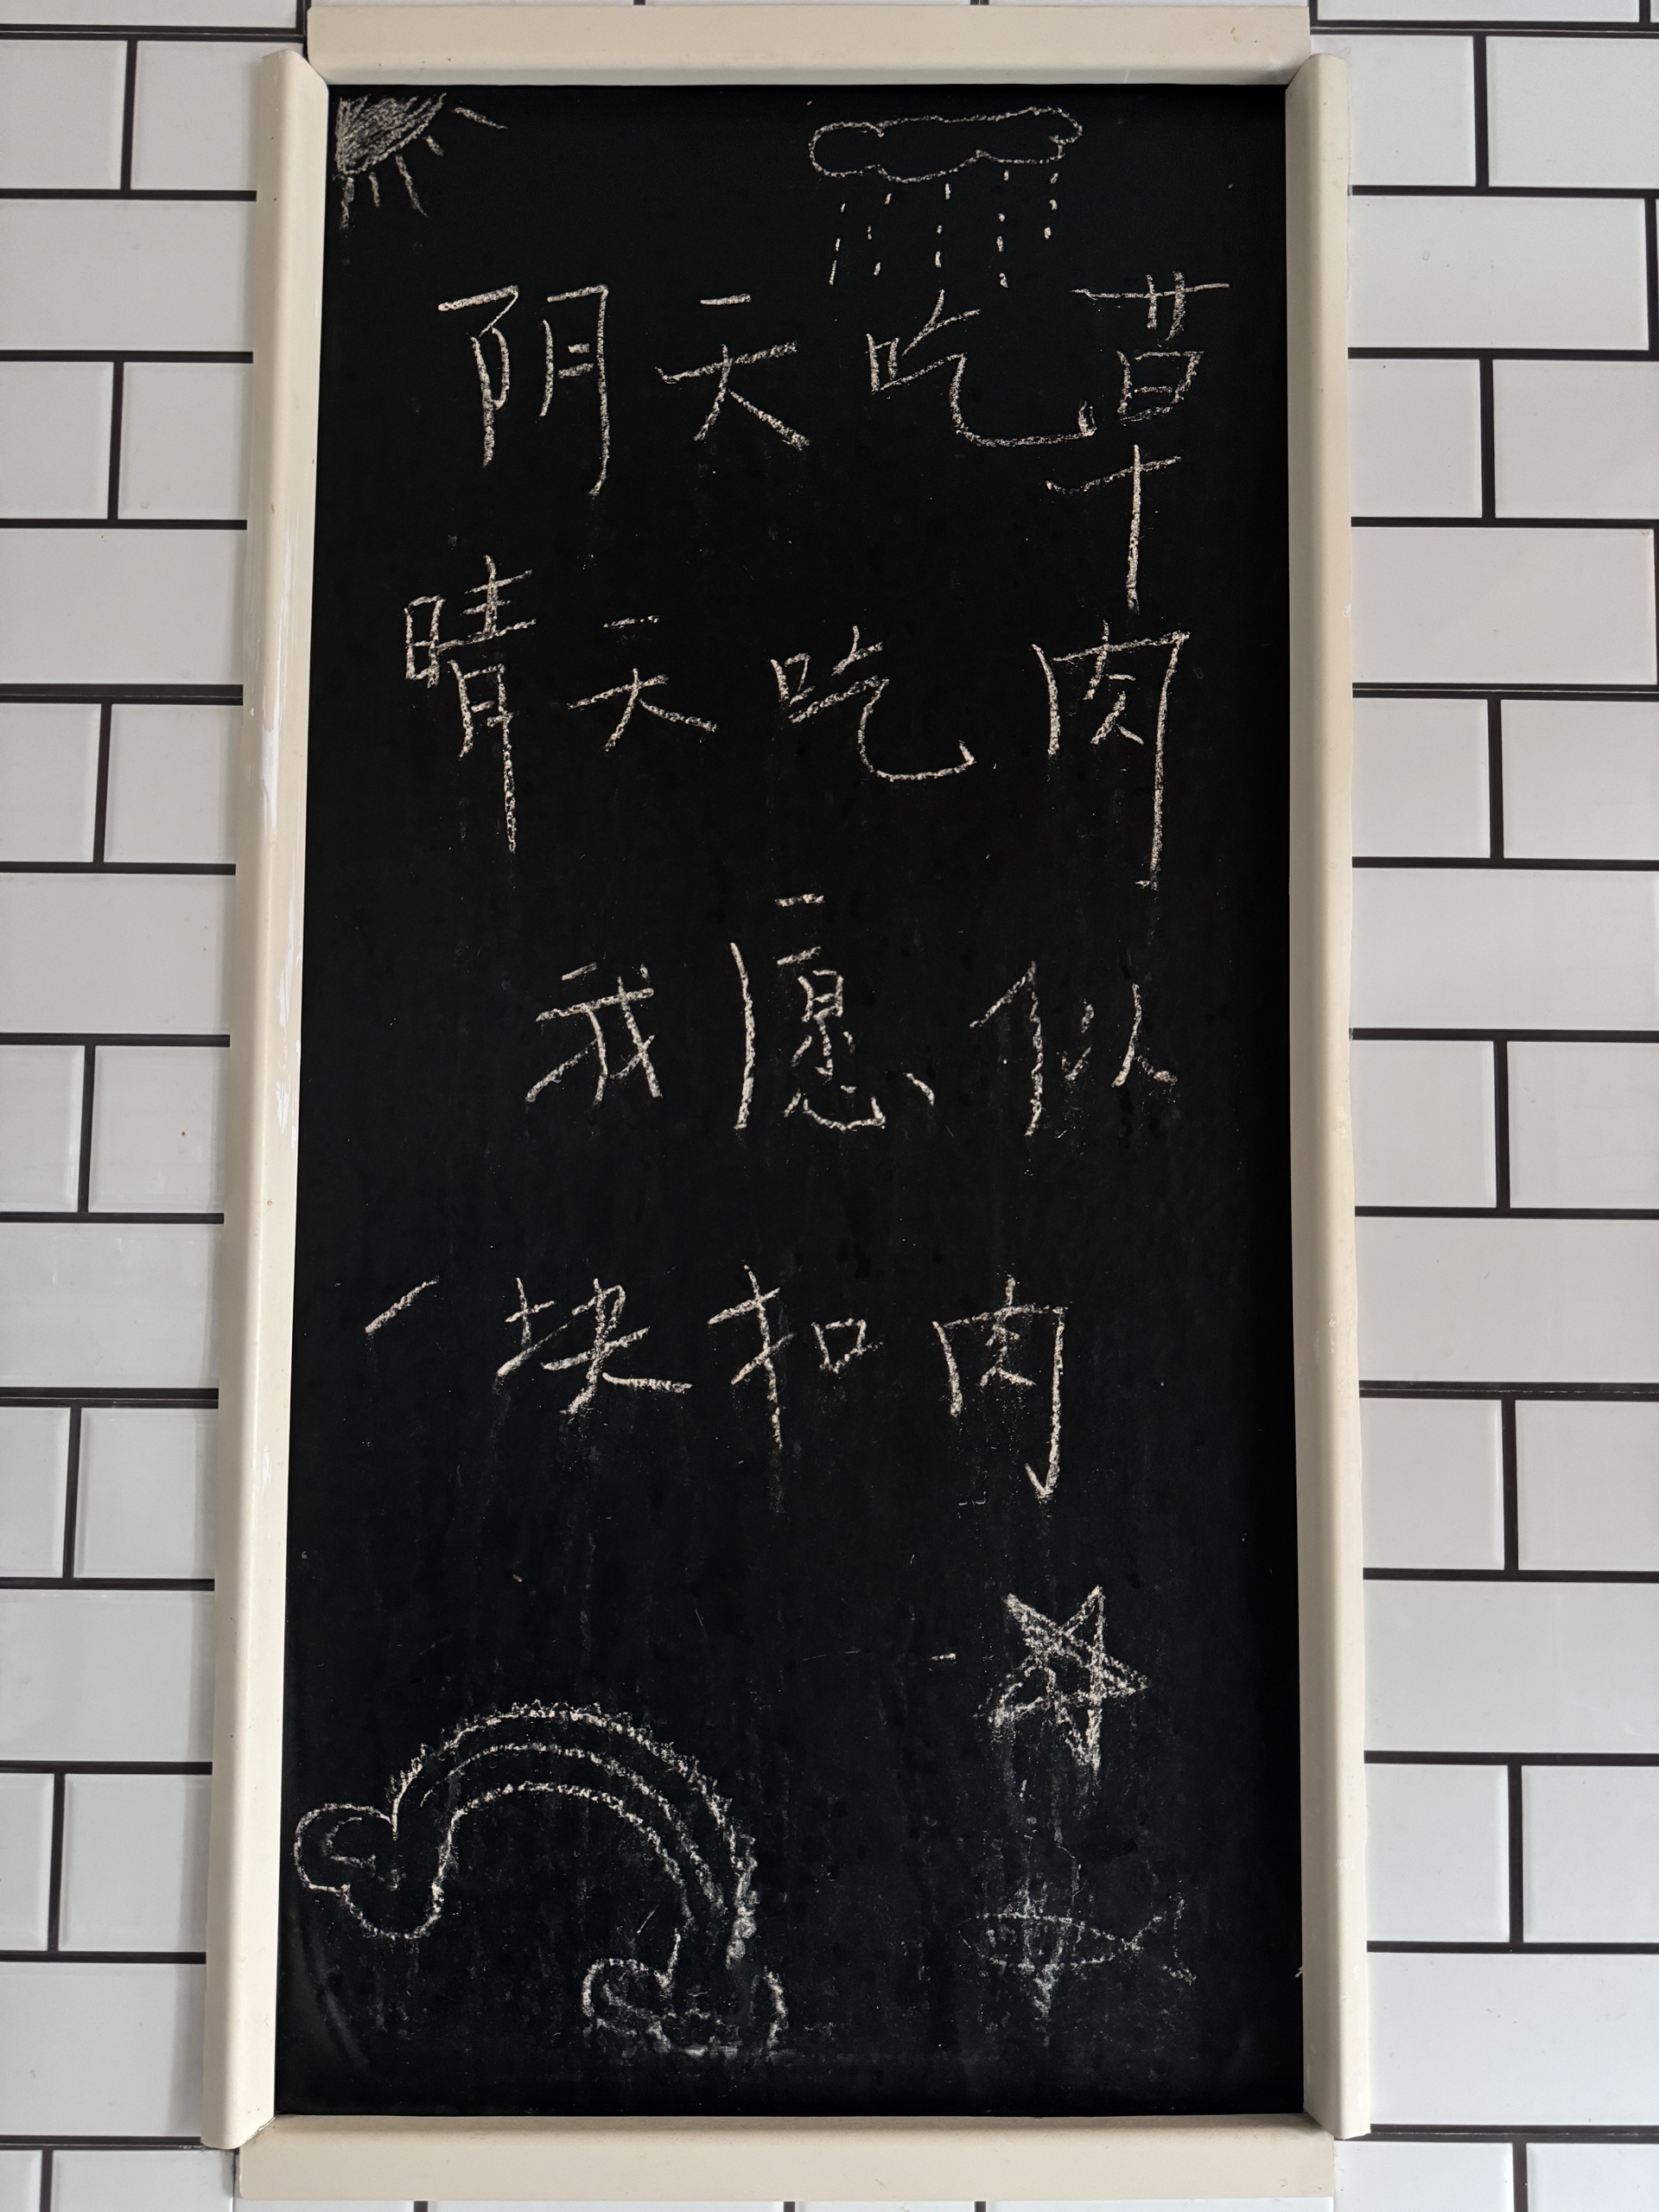 阴天吃草
晴天吃肉
我愿似
一块扣肉